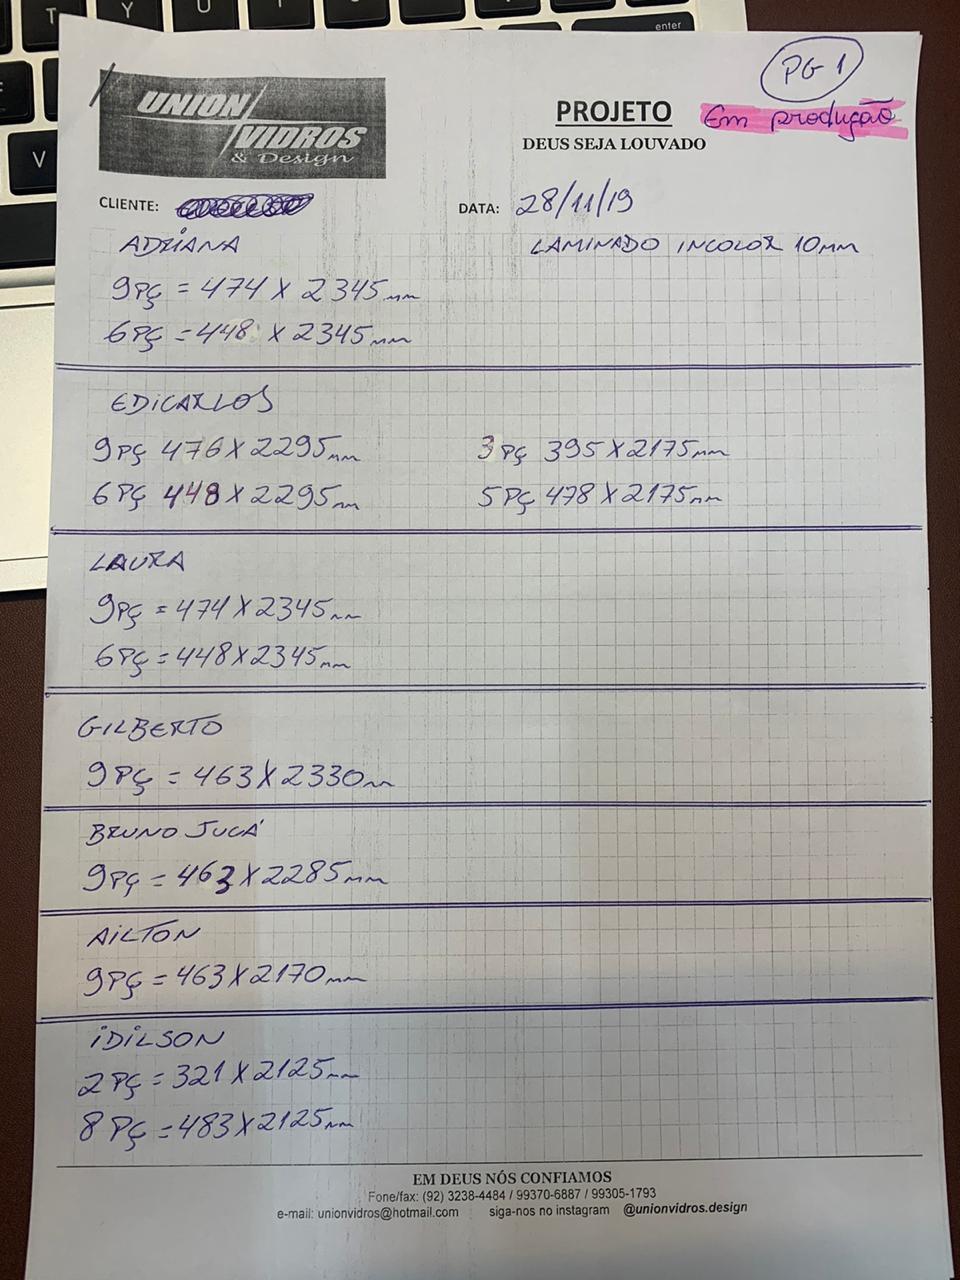 PG 1
UNION
VIDROS
& Design
PROJETO
Em produção
DEUS SEJA LOUVADO
CLIENTE:
DATA: 28/11/19
ADRIANA
LAMINADO INCOLOR 10mm
9PÇ = 474 X 2345mm
6PÇ = 448 X 2345mm
EDICARLOS
9PÇ 476 X 2295mm
3PÇ 395 X 2175mm
6PÇ 448 X 2295mm
5PÇ 478 X 2175mm
LAURA
9PÇ = 474 X 2345mm
6PÇ = 448 X 2345mm
GILBERTO
9PÇ = 463 X 2330m
BRUNO JUCÁ
9PÇ = 463 X 2285mm
AILTON
9PÇ = 463 X 2170mm
IDILSON
2PÇ = 321 X 2125mm
8PÇ = 483 X 2125mm
EM DEUS NÓS CONFIAMOS
Fone/fax: (92) 3238-4484 / 99370-6887 / 99305-1793
e-mail: unionvidros@hotmail.com siga-nos no instagram @unionvidros.design
T Y U
enter
V